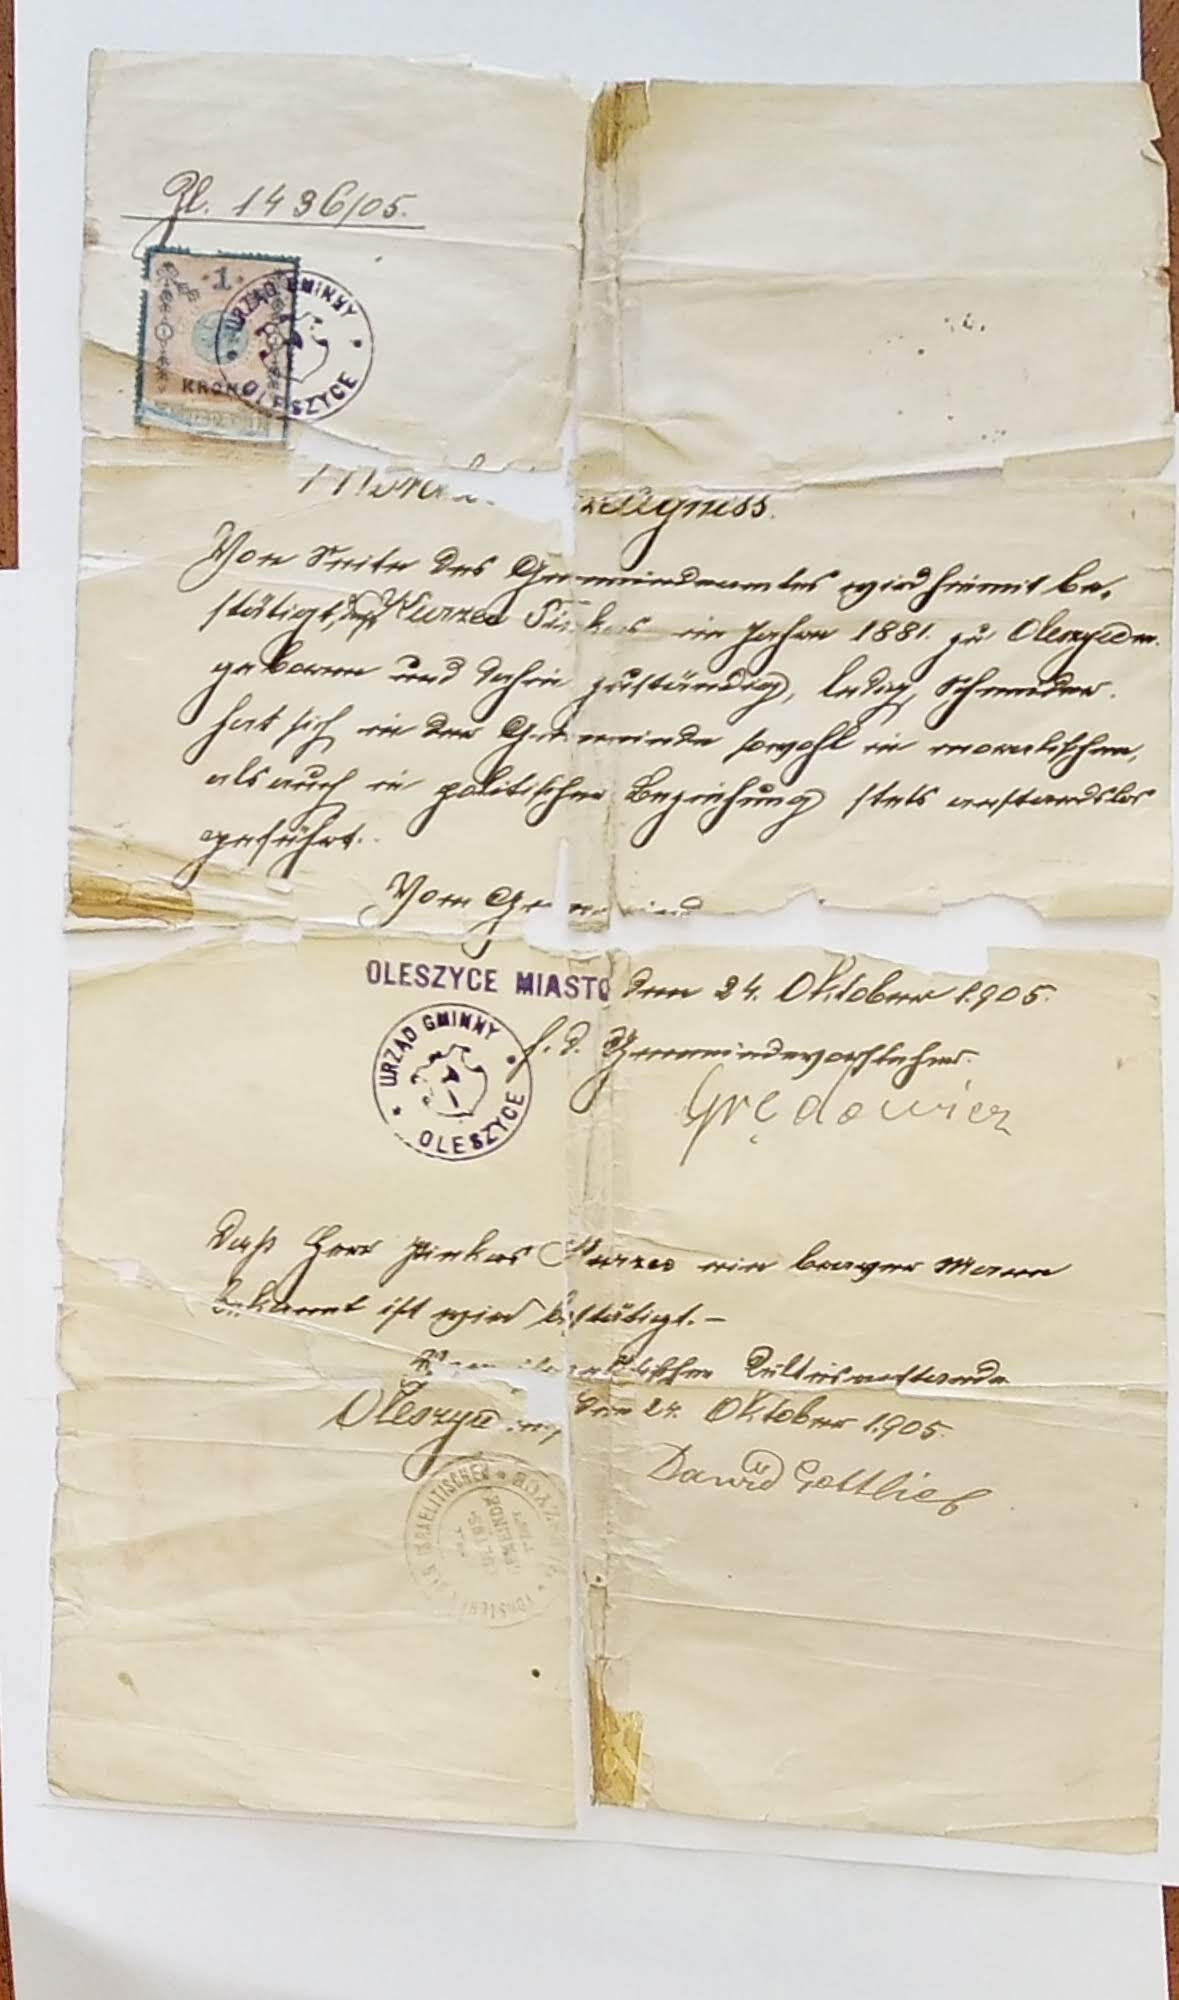 Zl. 1436/05.
1
KRON
URZĄD GMINNY
OLESZYCE
Moral zeugniss.
Von Seite des Gemeindeamtes wird hiemit be-
stätigt, daß Kurzer Pinkas im Jahre 1881. zu Oleszyce
geboren und dahin zuständig, ledig, Schneider.
hat sich in der Gemeinde sowohl in moralischer,
als auch in politischer Beziehung stets anstandslos
geführt.
Vom Gemeind
OLESZYCE MIASTO den 24. Oktober 1905.
URZĄD GMINNY
OLESZYCE
f. d. Gemeindevorsteher.
Daß Herr Pinkas Kurzer ein braver Mann
bekannt ist wird bestätigt.-
israelitischen Cultusvorstande
den 24. Oktober 1905.
ISRAELITISCHEN
Dawid Gottlieb